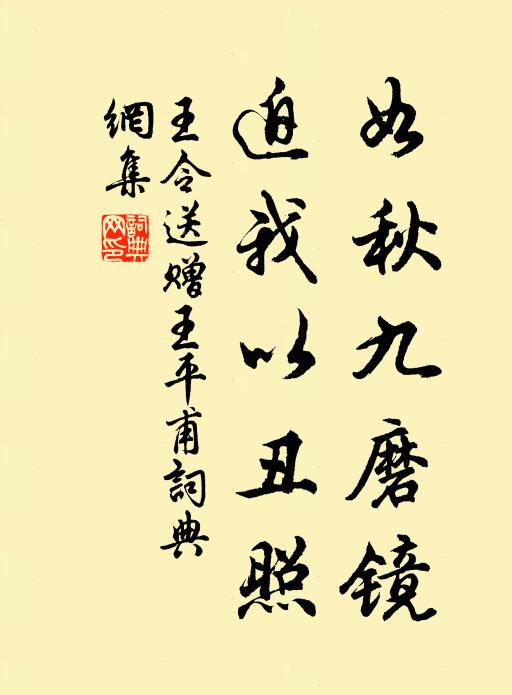 如秋九磨镜
迫我以丑照
王令送赠王平甫詞典
網集
詞典網印